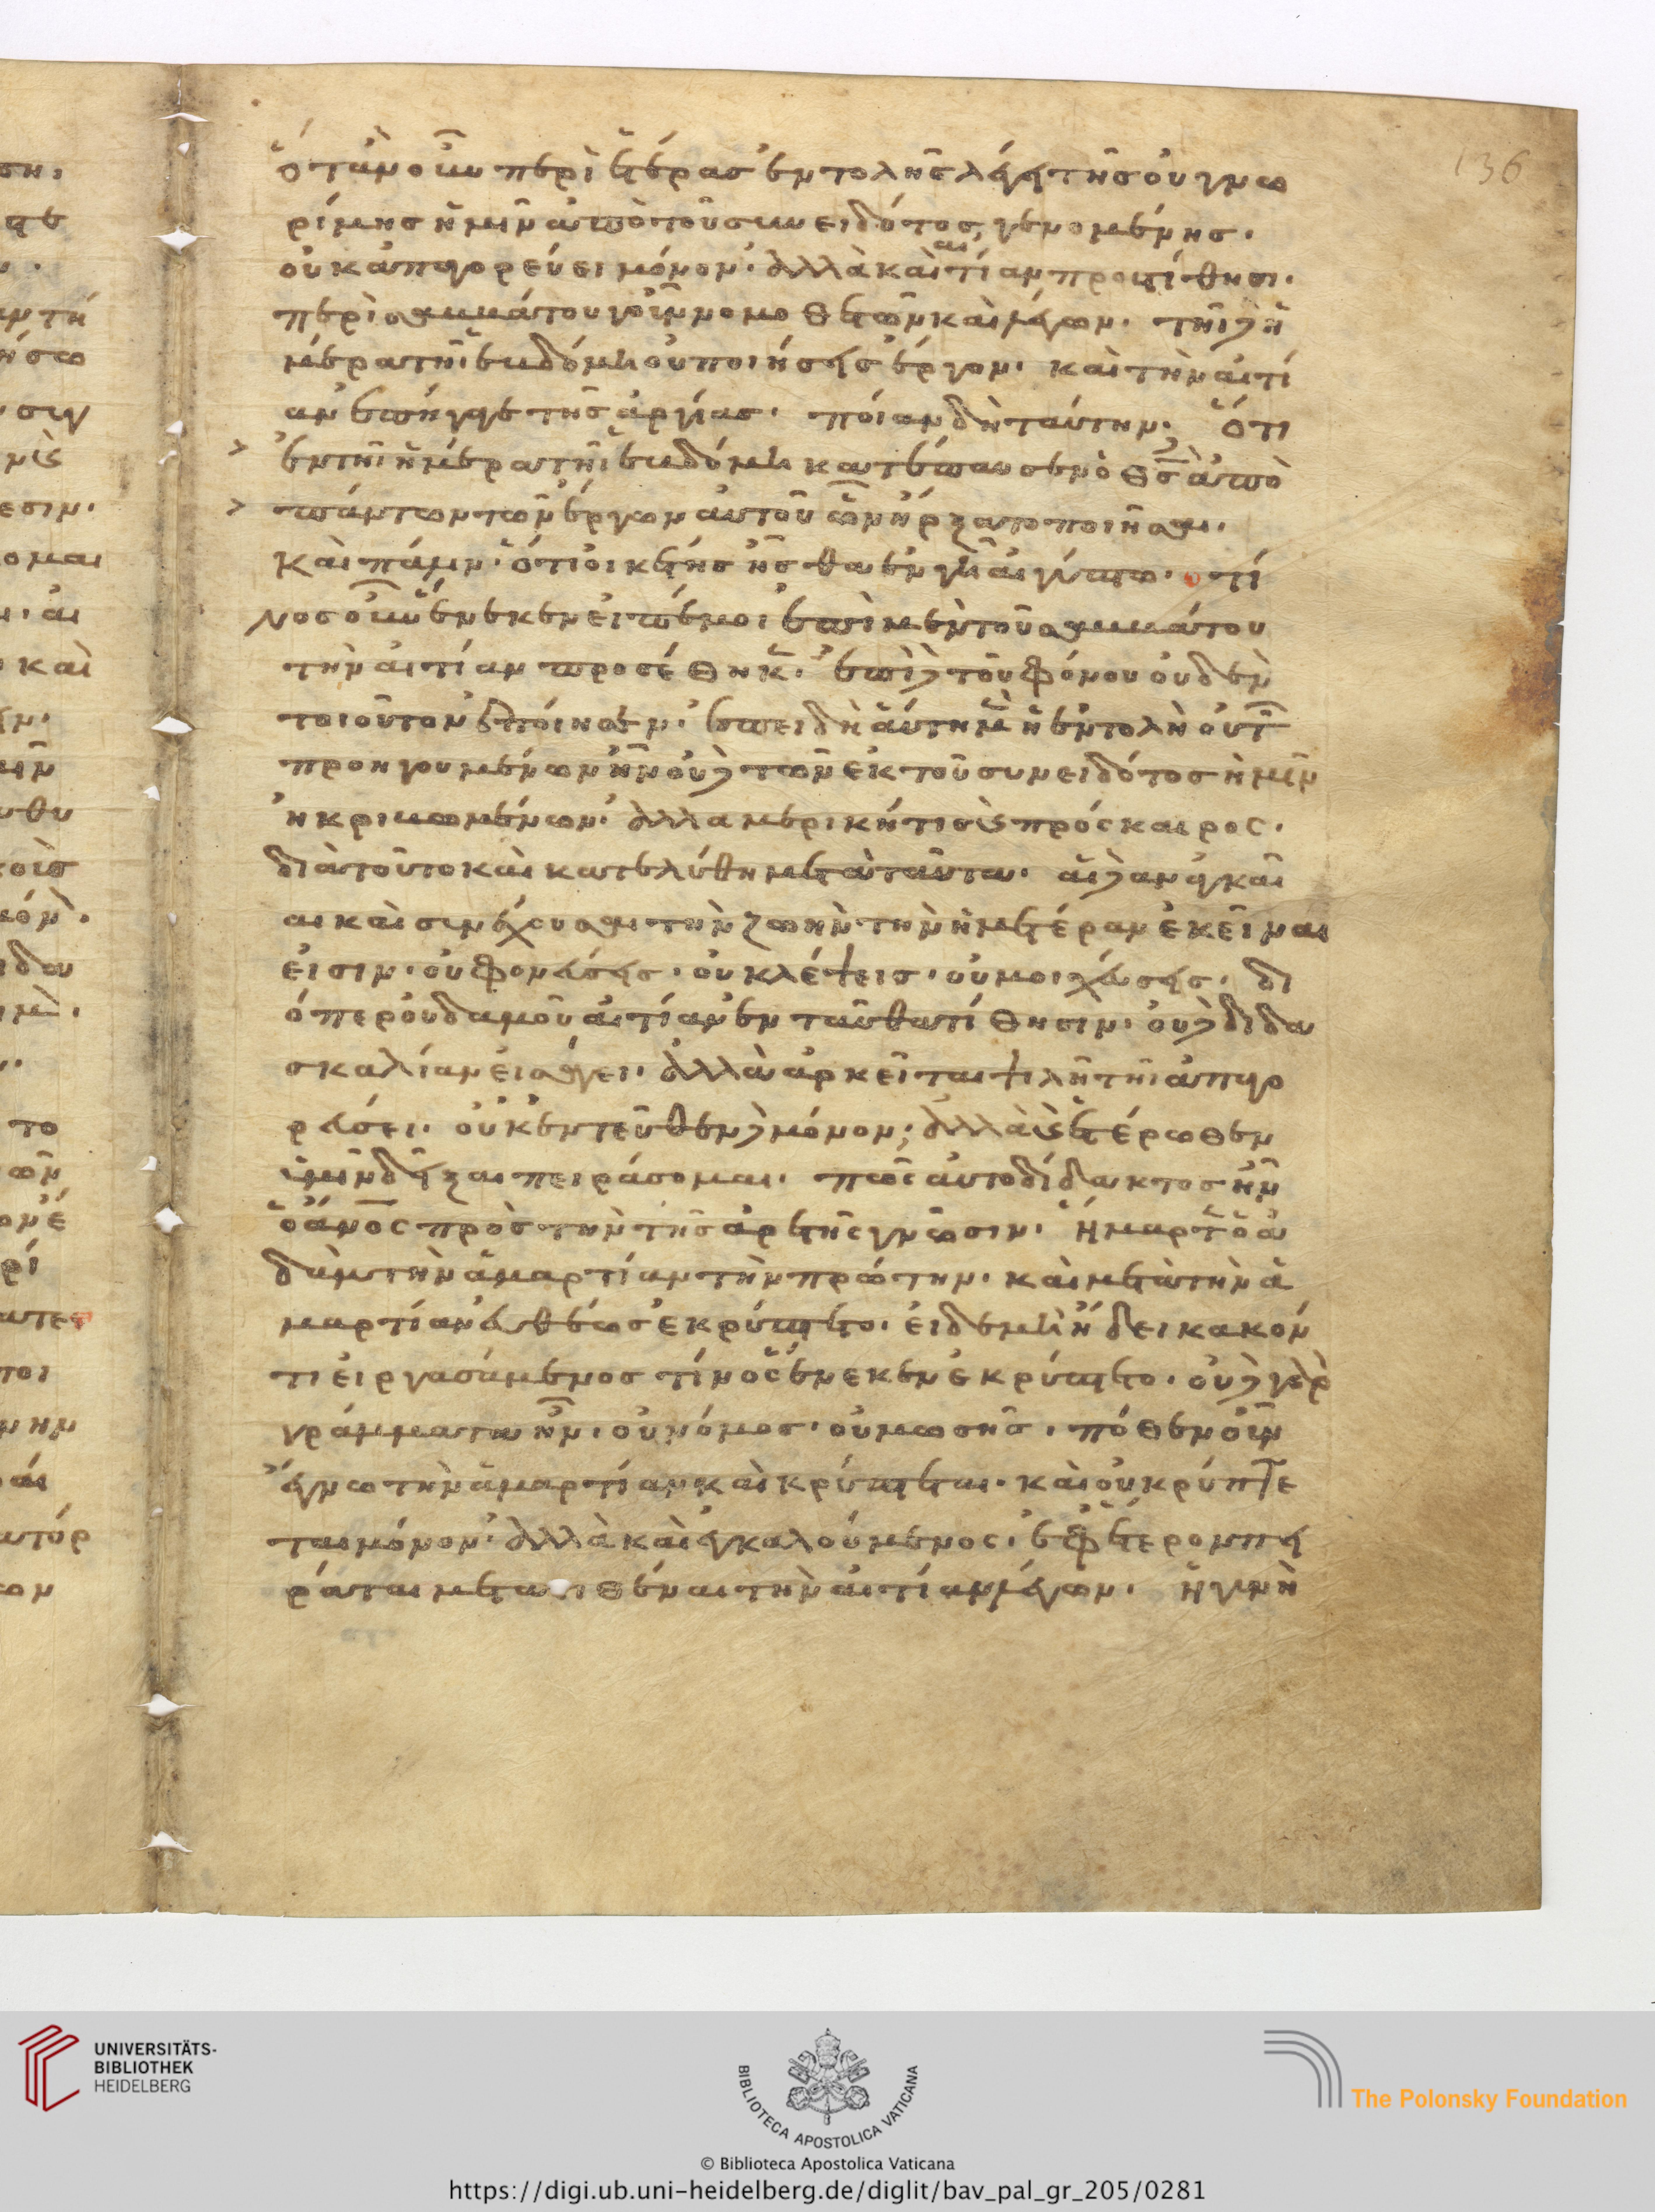 136
Ὅταν οὖν περὶ ἑτέρας ἐντολῆς λέγη τῆς οὐ γνω
ρίμης ἡμῖν ἀπὸ τοῦ συνειδότος γενομένης.
οὐκ ἀπαγορεύει μόνον. ἀλλὰ καὶ αἰτίαν προστίθησι.
περὶ σαββάτου γοῦν νομοθετῶν καὶ λέγων. τῆι δὲ ἡ
μέρα τῆι ἑβδόμη οὐ ποιήσεις ἔργον. καὶ τὴν αἰτί
αν ἐπήγαγε τῆς ἀργίας. ποίαν δὴ ταύτην. Ὅτι
> ἐν τῆι ἡμέρα τῆι ἑβδόμη κατέπαυσεν ὁ θς ἀπὸ
> πάντων τῶν ἔργων αὐτοῦ ὧν ἤρξατο ποιῆσαι.
Καὶ πάλιν. ὅτι οἰκέτης ἦσθα ἐν γῆ αἰγύπτω. τί
νος οὖν ἕνεκεν εἰπέ μοι ἐπὶ μὲν τοῦ σαββάτου
τὴν αἰτίαν προσέθηκε. ἐπὶ δὲ τοῦ φόνου οὐδὲν
τοιοῦτον ἐποίησεν. ἐπειδὴ αὕτη μὲν ἡ ἐντολὴ οὐ τῶν
προηγουμένων ἦν οὐδὲ τῶν ἐκ τοῦ συνειδότος ἡμῖν
ἠκριβωμένων. ἀλλὰ μερική τις καὶ πρόσκαιρος.
διὰ τοῦτο καὶ κατελύθη μετὰ ταῦτα. αἱ δὲ ἀναγκαῖ
αι καὶ συνέχουσαι τὴν ζωὴν τὴν ἡμετέραν ἐκεῖναι
εἰσιν. οὐ φονεύσεις. οὐ κλέψεις. οὐ μοιχεύσεις. δι
όπερ οὐδαμοῦ αἰτίαν ἐνταῦθα τίθησιν. οὐδὲ διδα
σκαλίαν εἰσάγει. ἀλλὰ ἀρκεῖται ψιλῆ τῆι ἀπαγο
ρεύσει. οὐκ ἐντεῦθεν δὲ μόνον. ἀλλὰ καὶ ἑτέρωθεν
ὑμῖν δεῖξαι πειράσομαι. πῶς αὐτοδίδακτος ἦν
ὁ ἄνος πρὸς τὴν τῆς ἀρετῆς γνῶσιν. Ἥμαρτεν ὁ ἀ
δὰμ τὴν ἁμαρτίαν τὴν πρώτην. καὶ μετὰ τὴν ἁ
μαρτίαν εὐθέως ἐκρύπτετο. εἰ δὲ μὴ ἤδει κακόν
τι εἰργασάμενος τίνος ἕνεκεν ἐκρύπτετο. οὐδὲ γὰρ
γράμματα ἦν. οὐ νόμος. οὐ μωσῆς. πόθεν οὖν
ἔγνω τὴν ἁμαρτίαν καὶ κρύπτεται. καὶ οὐ κρύπτε
ται μόνον. ἀλλὰ καὶ ἐγκαλούμενος. ἐφ' ἕτερον πει
ρᾶται μετατιθέναι τὴν αἰτίαν λέγων. ἡ γυνὴ
UNIVERSITÄTS-
BIBLIOTHEK
HEIDELBERG
BIBLIOTECA APOSTOLICA VATICANA
The Polonsky Foundation
© Biblioteca Apostolica Vaticana
https://digi.ub.uni-heidelberg.de/diglit/bav_pal_gr_205/0281